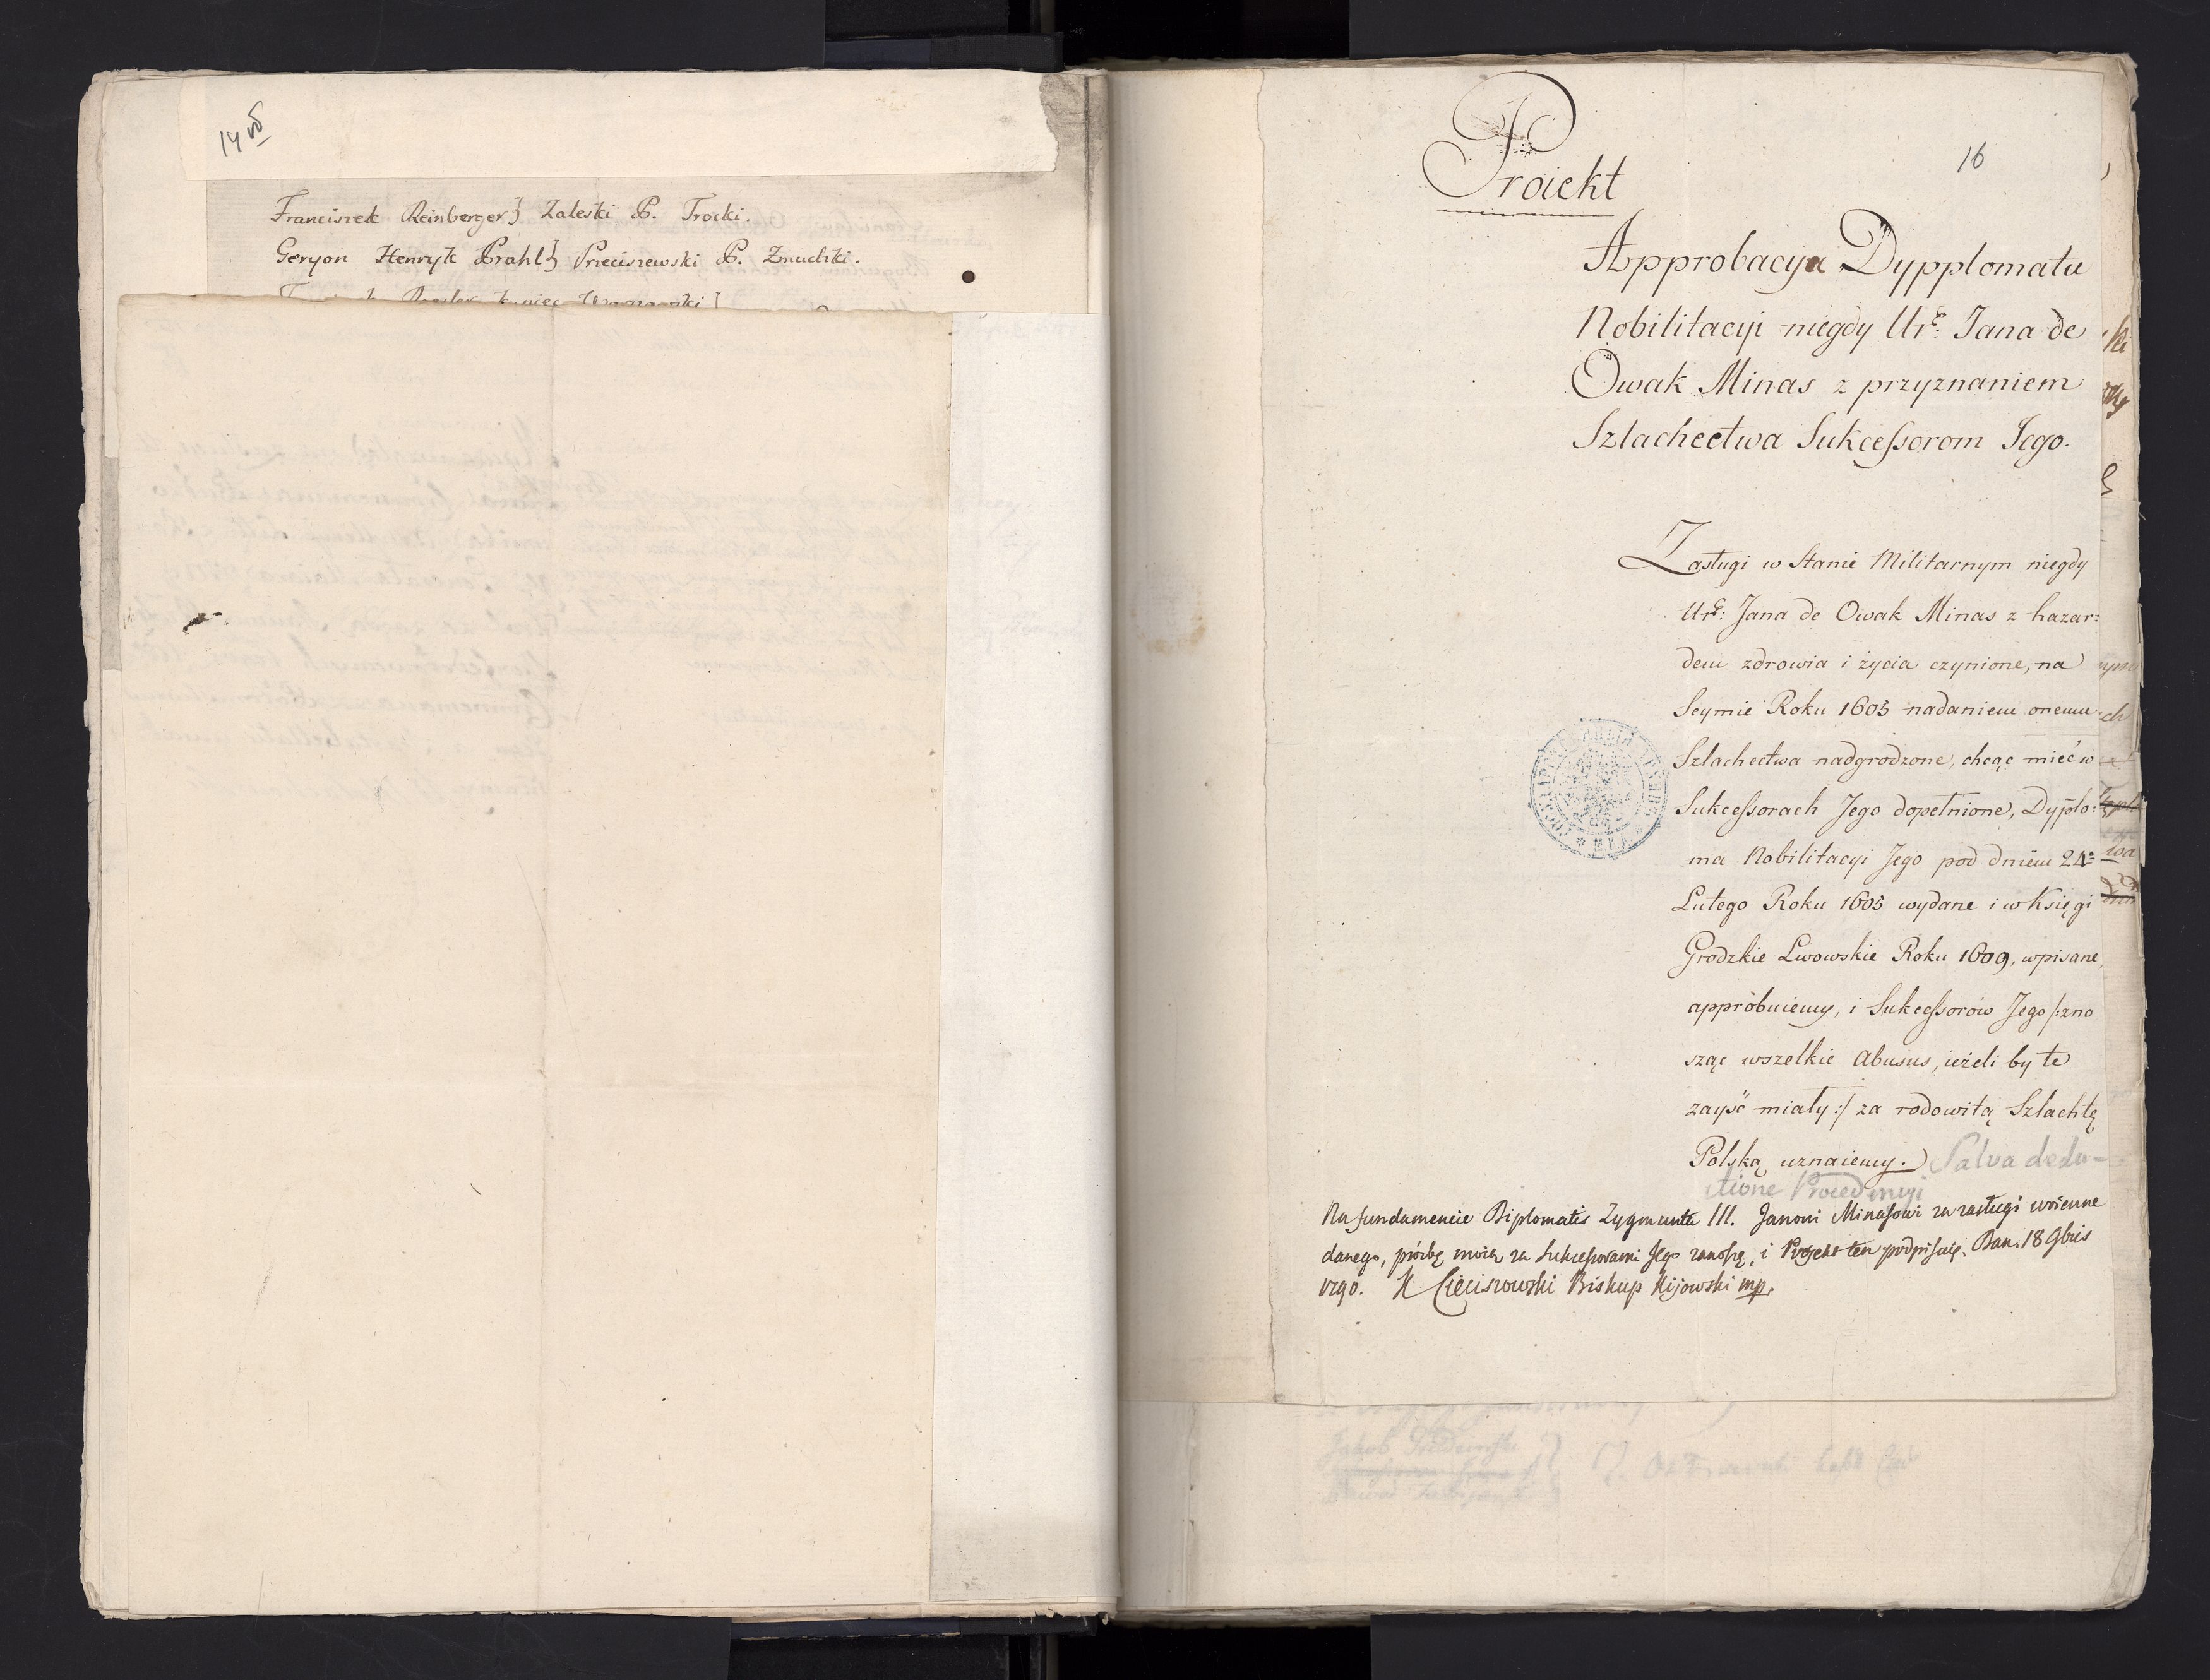 14 vo
Franciszek Reinberger} Zaleski P. Trocki.
Geryon Henryk Prahl} Przeciszewski P. Zmudzki.
16
Proiekt
Approbacyja Dypplomatu
Nobilitacyi niegdy Ur: Jana de
Owak Minas z przyznaniem
Szlachectwa Sukcessorom Jego.
Zasługi w Stanie Militarnym niegdy
Ur: Jana de Owak Minas z hazar:
dem zdrowia i życia czynione, na
Seymie Roku 1605 nadaniem onemu
Szlachectwa nadgrodzone, chcąc mieć w
Sukcessorach Jego dopełnione, Dyplo:
ma Nobilitacyi Jego pod dniem 24º
Lutego Roku 1605 wydane i w Księgi
Grodzkie Lwowskie Roku 1609, wpisane,
approbuiemy, i Sukcessorów Jego /:zno
sząc wszelkie abusus, ieżeli by te
zayść miały:/ za rodowitą Szlachtę
Polską uznaiemy. Salva dedu-
ctione
Na fundamencie Diplomatis Zygmunta III. Janowi Minasowi za zasługi woienne
danego, próźbę moią za Sukcessorami Jego zanoszę, i Projekt ten podpisuię. Dan. 18 9bris
1790. K Cieciszowski Biskup Kijowski mp.